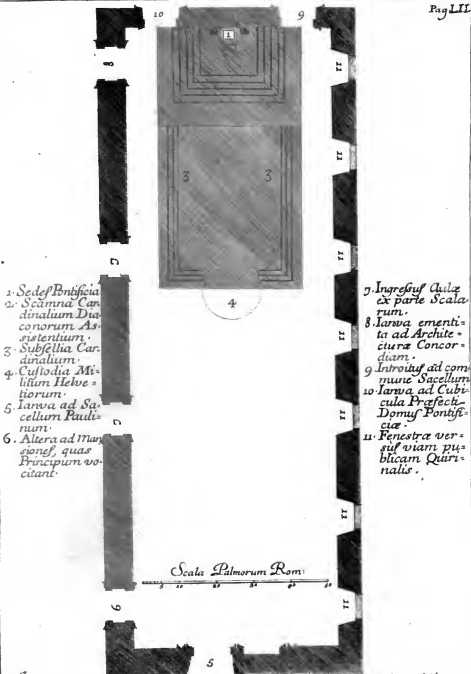 Pag LII
10
9
1
8
11
11
3
3
11
7
4
1. Sedeſ Pontificia
2. Scamna Car=
dinalium Dia=
conorum As=
sistentium.
3. Subſellia Car=
dinalium.
4. Cuſtodia Mi=
litium Helve=
tiorum.
5. Ianva ad Sa=
cellum Pauli=
num.
6. Altera ad Man
sioneſ, quas
Principum vo=
citant.
7. Ingreſſuſ Aulæ
ex parte Scala=
rum.
8. Ianva ementi=
ta ad Archite=
cturæ Concor=
diam.
9 Introituſ ad com
mune Sacellum
10. Ianva ad Cubi
cula Præfecti
Domuſ Pontifi=
ciæ.
11. Feneſtræ ver=
ſuſ viam pu=
blicam Quiri=
nalis.
11
7
11
11
Scala Palmorum Rom:
5 10
6
11
5